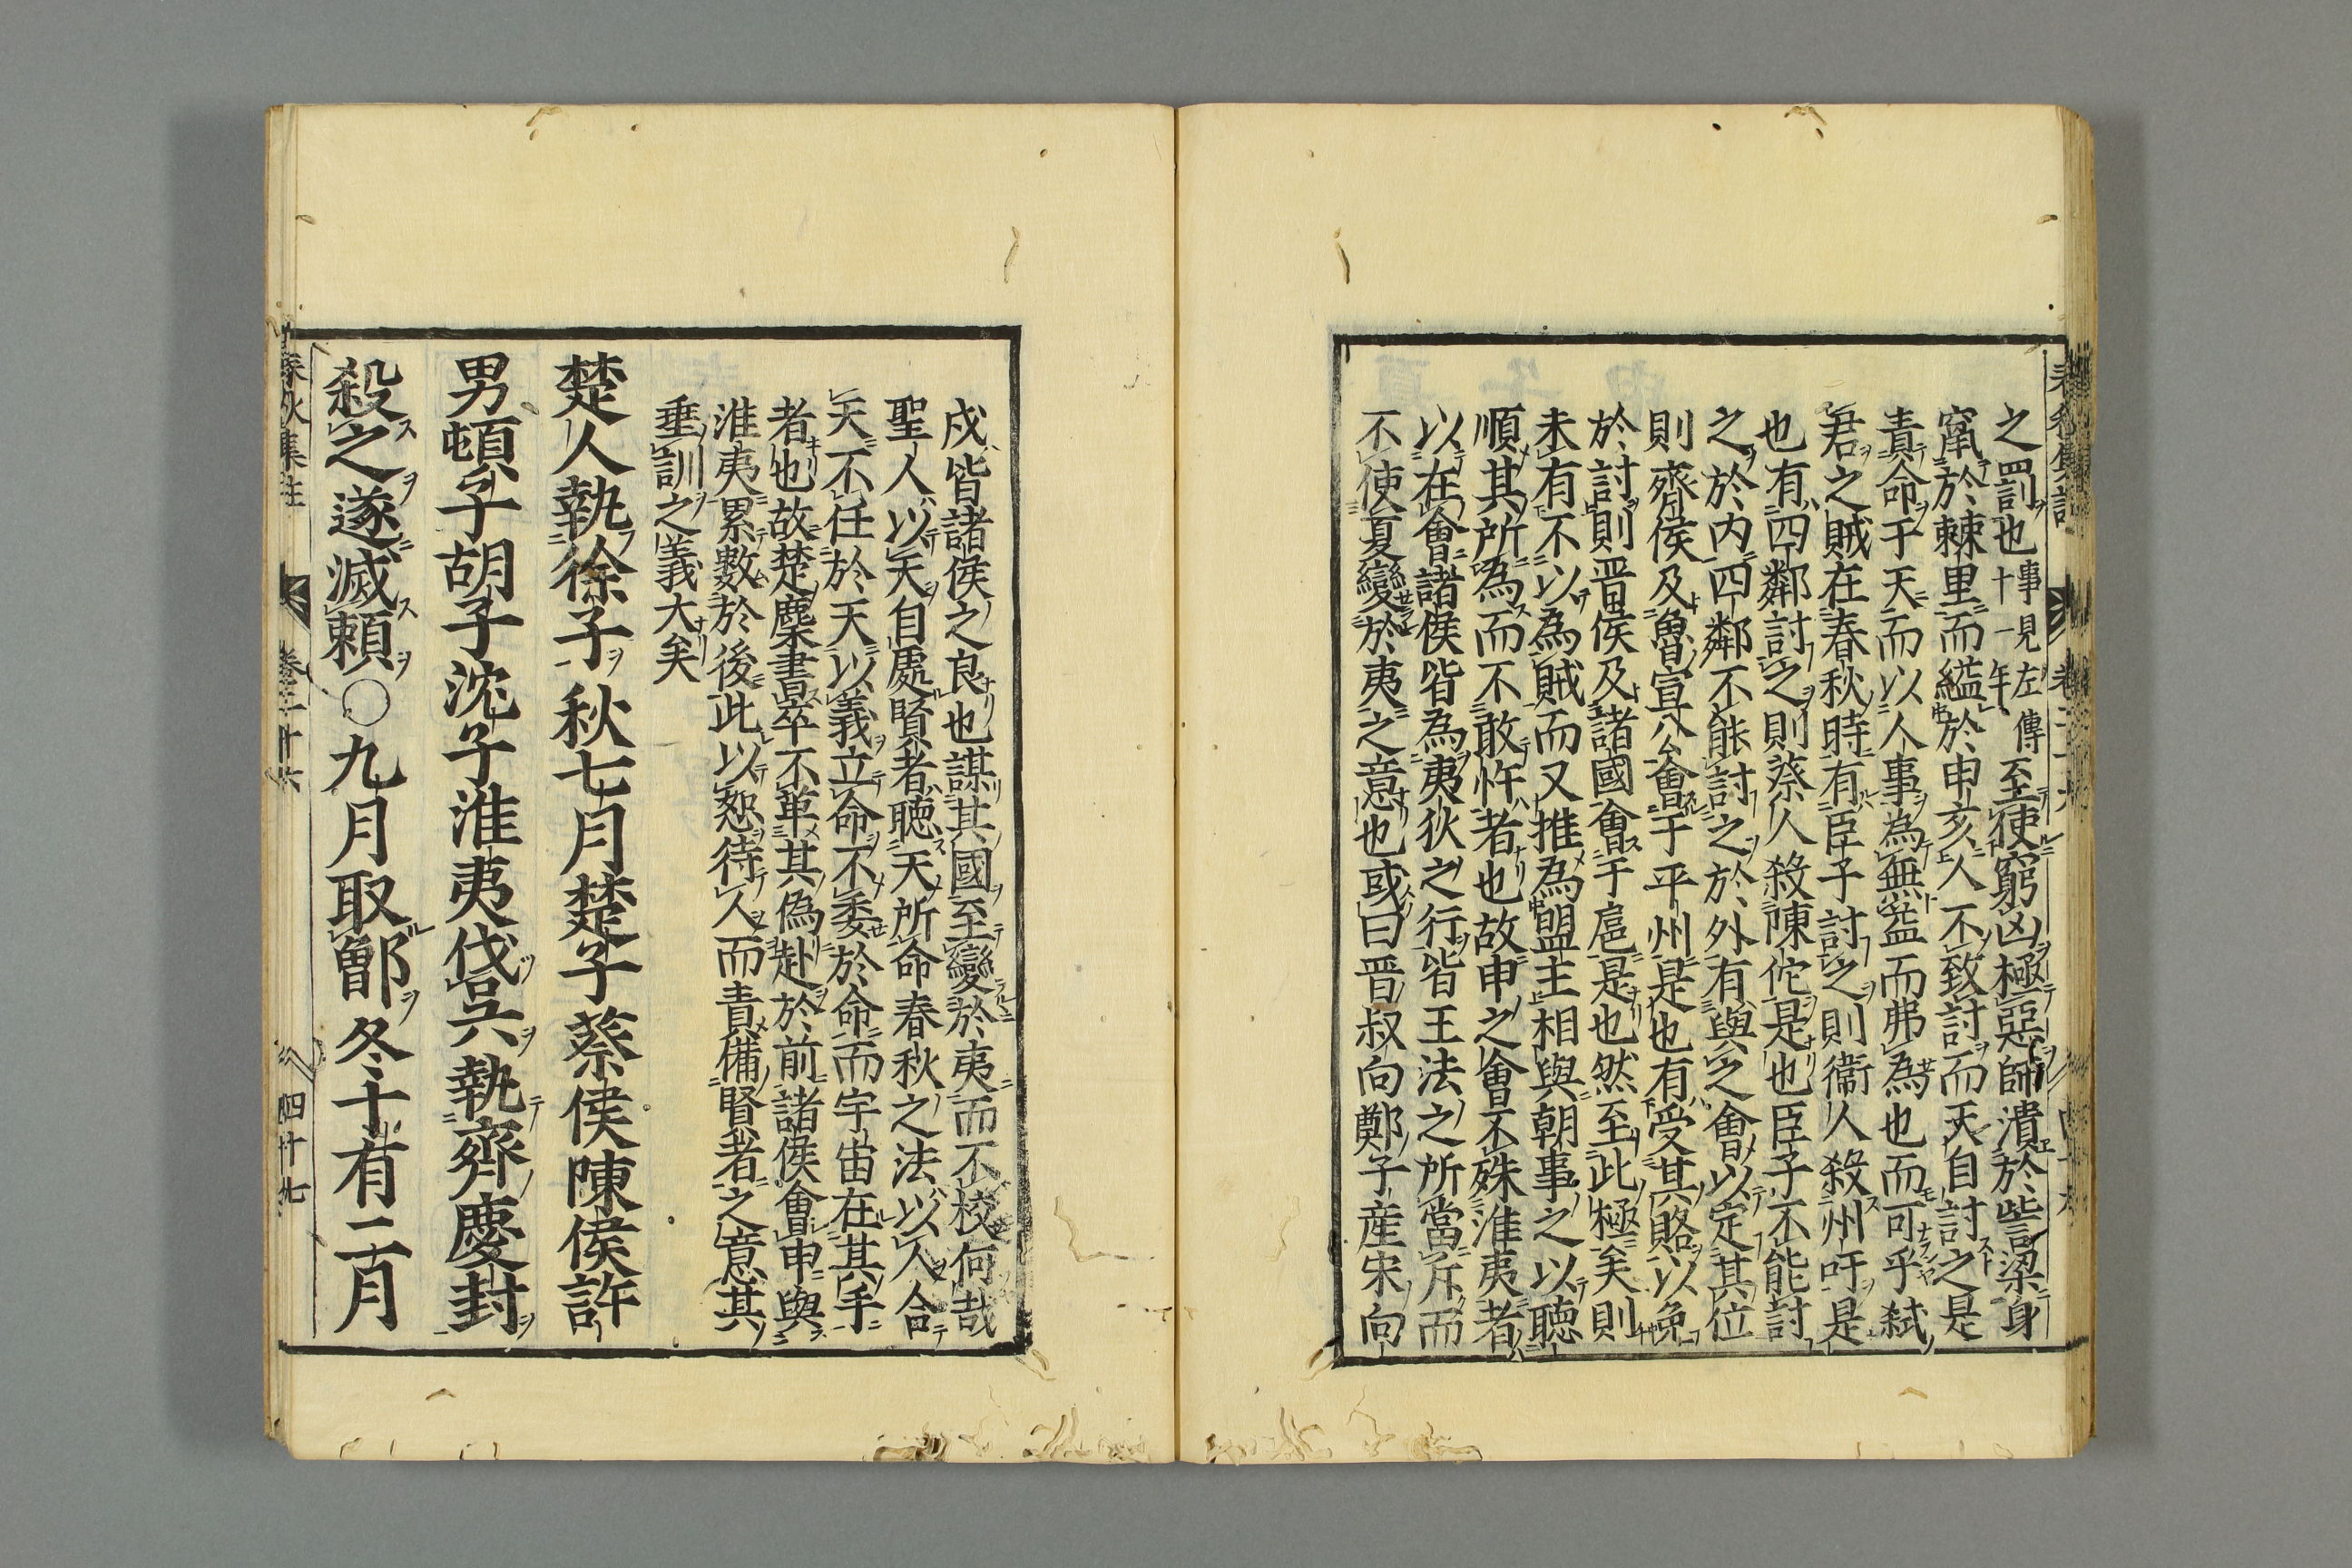 之罰也事見左傳十一年至使窮凶極惡師潰於訾梁身
竄於棘里而縊於申亥人不致討而天自討之是
責命于天而以人事為無益而弗為也而可乎弒
君之賊在春秋時有臣子討之則衞人殺州吁是
也有四鄰討之則蔡人殺陳佗是也臣子不能討
之於内四鄰不能討之於外有與之會以定其位
則齊侯及魯宣公會于平州是也有受其賂以免
於討則晋侯及諸國會于扈是也然至此極矣則
未有不以為賊而又推為盟主相與朝事之以聽
順其所為而不敢忤者也故申之會不殊淮夷者
以在會諸侯皆為夷狄之行皆王法之所當斥而
不使夏變於夷之意也或曰晋叔向鄭子産宋向
戍皆諸侯之良也謀其國至變於夷而不校何哉
聖人以天自處賢者聽天所命春秋之法以人合
天不任於天以義立命不委於命而宇宙在其手
者也故楚麇書卒不革其偽赴於前諸侯會申與
淮夷累數於後此以恕待人而責備賢者之意其
垂訓之義大矣
楚人執徐子秋七月楚子蔡侯陳侯許
男頓子胡子沈子淮夷伐吳執齊慶封
殺之遂滅賴〇九月取鄫冬十有二月
春秋集註 卷二十六 四十七